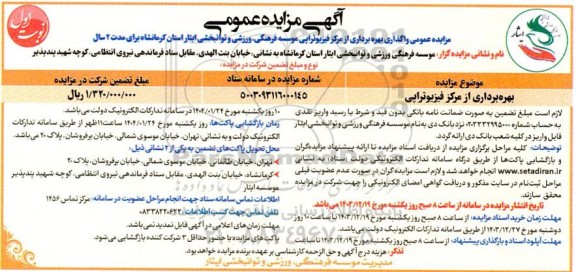 آگهی مزایده عمومی
نوبت اول
ایثار
مزایده عمومی واگذاری بهره برداری از مرکز فیزیوتراپی موسسه فرهنگی، ورزشی و توانبخشی ایثار استان کرمانشاه برای مدت ۲ سال
نام و نشانی مزایده گزار: موسسه فرهنگی ورزشی و توانبخشی ایثار استان کرمانشاه به نشانی: خیابان بنت الهدی، مقابل ستاد فرماندهی نیروی انتظامی، کوچه شهید پندپذیر
نوع و مبلغ تضمین شرکت در مزایده:
موضوع مزایده
شماره مزایده در سامانه ستاد
مبلغ تضمین شرکت در مزایده
بهره‌برداری از مرکز فیزیوتراپی
۵۰۰۳۰۹۳۱۱۶۰۰۰۱۴۵
۱/۳۲۰/۰۰۰/۰۰۰ ریال
لازم است مبلغ تضمین به صورت ضمانت نامه بانکی بدون قید و شرط یا رسید واریز نقدی
به حساب شماره نزد بانک دی به نام موسسه فرهنگی ورزشی و توانبخشی ایثار
قابل واریز در کلیه شعب بانک دی ارائه گردد.
توضیحات: کلیه مراحل برگزاری مزایده از دریافت اسناد مزایده تا ارائه پیشنهاد مزایده‌گران
و بازگشایی پاکت‌ها از طریق درگاه سامانه تدارکات الکترونیکی دولت (ستاد) به نشانی
www.setadiran.ir انجام خواهد شد و لازم است مزایده گران در صورت عدم عضویت قبلی
مراحل ثبت‌نام در سایت مذکور و دریافت گواهی امضای الکترونیکی را جهت شرکت در مزایده
محقق سازند.
تاریخ انتشار مزایده در سامانه از ساعت ۸ صبح روز یکشنبه مورخ ۱۴۰۳/۱۲/۱۹ می‌باشد
مهلت زمان خرید اسناد مزایده: از ساعت ۸ صبح روز یکشنبه مورخ ۱۴۰۳/۱۲/۱۹ تا ساعت
روز دوشنبه مورخ ۱۴۰۳/۱۲/۲۷ از طریق سامانه تدارکات الکترونیک دولت می‌باشد.
مهلت آپلود اسناد و بارگذاری پیشنهاد: از ساعت ۸ صبح روز یکشنبه مورخ ۱۴۰۳/۱۲/۱۹ تا ساعت
۱۰ روز یکشنبه مورخ ۱۴۰۴/۰۱/۲۴ در سامانه تدارکات الکترونیک دولت می‌باشد.
زمان بازگشایی پاکت‌ها: روز یکشنبه مورخ ۱۴۰۴/۰۱/۲۴ ساعت ۱۱ ظهر از طریق سامانه تدارکات
الکترونیک دولت و به نشانی: تهران، خیابان موسوی شمالی، خیابان برفروشان، پلاک ۲۰ می‌باشد.
محل تحویل پاکت‌های تضمین به یکی از ۲ نشانی ذیل:
تهران، خیابان طالقانی، خیابان موسوی شمالی، خیابان برفروشان، پلاک ۲۰
کرمانشاه، خیابان بنت الهدی، مقابل ستاد فرماندهی نیروی انتظامی، کوچه شهید پندپذیر،
موسسه ایثار
اطلاعات تماس سامانه ستاد جهت انجام مراحل عضویت در سامانه: مرکز تماس ۱۴۵۶
تلفن تماس جهت کسب اطلاعات: ۰۸۳۳۸۲۲۰۵۲۲
مهلت زمان‌های اعلامی در آگهی قابل تمدید نمی‌باشد.
پاکت‌های مزایده با حضور حداقل ۳ شرکت کننده بازگشایی می‌شود.
تذکر: هزینه درج آگهی و حق الزحمه کارشناسی بر عهده برنده مزایده خواهد بود.
مدیریت موسسه فرهنگی، ورزشی و توانبخشی ایثار